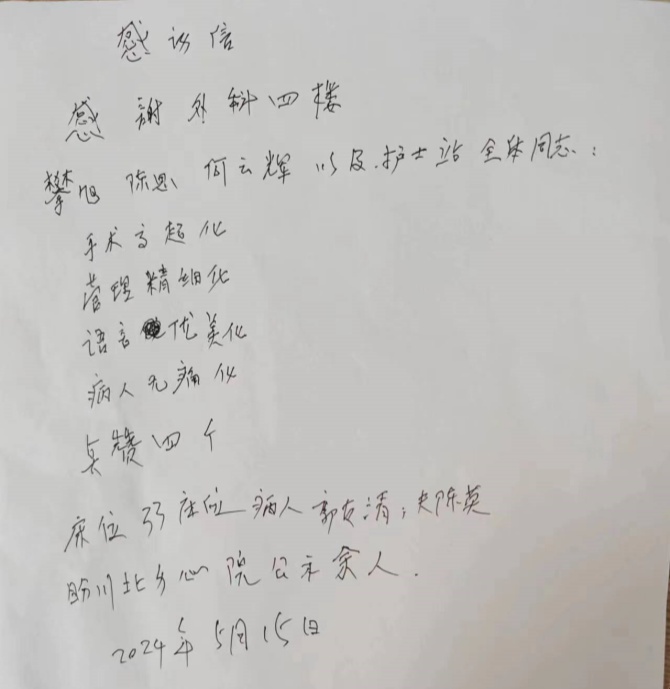 感谢信
感謝外科四楼
攀旭 陈恩 何云辉 以及护士站全体同志:
手术高超化
管理精细化
语言优美化
病人无痛化
点赞四个
床位33床位病人郭友清,夫陈英
盼川北乡心院公示余人.
2024年5月15日